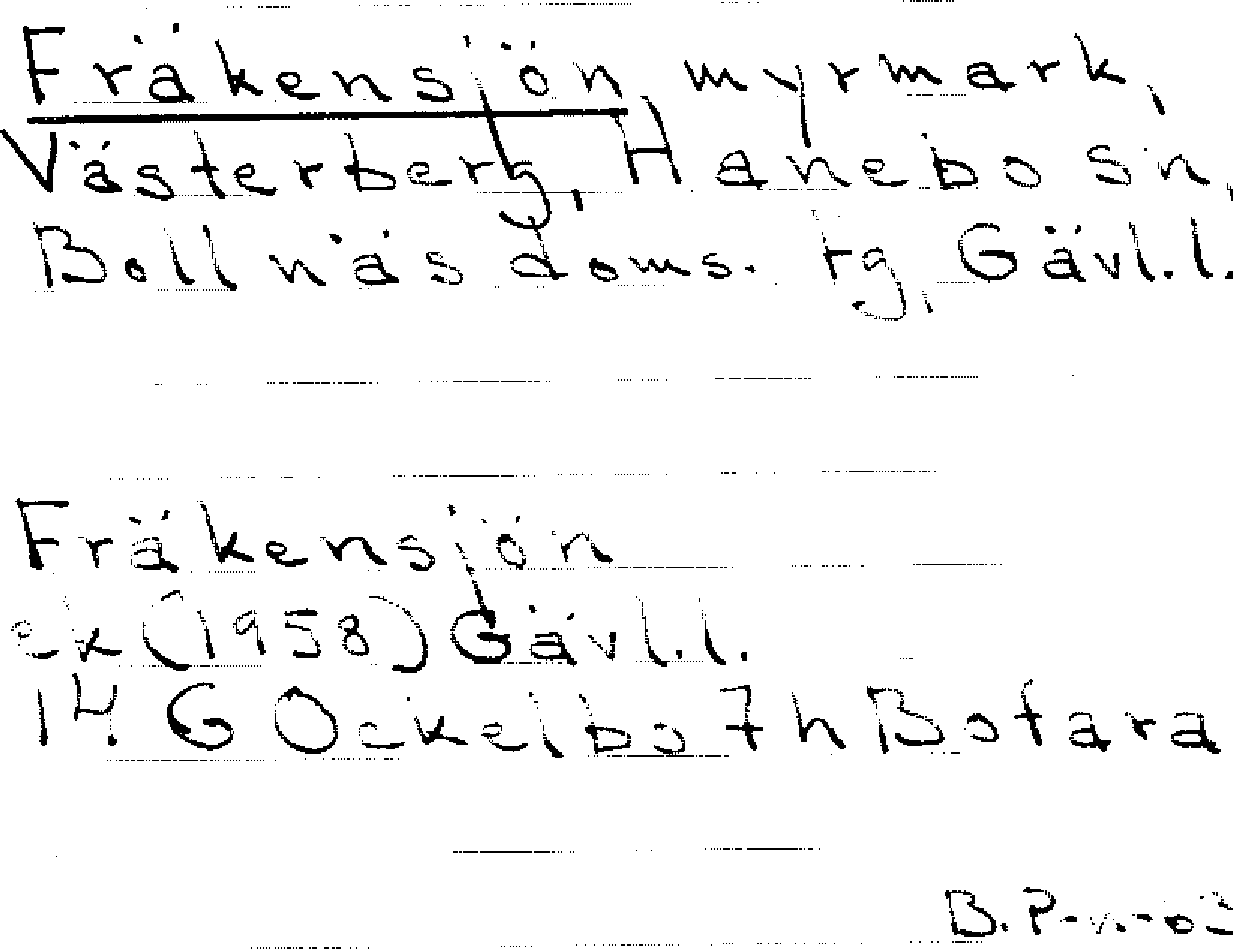 Fräkensjön, myrmark,
Västerberg, Hanebo sn,
Bollnäs doms. tg, Gävl.l.
Fräkensjön
ek (1958) Gävl.l.
14 G Ockelbo 7h Bofara
B. P-n.-03